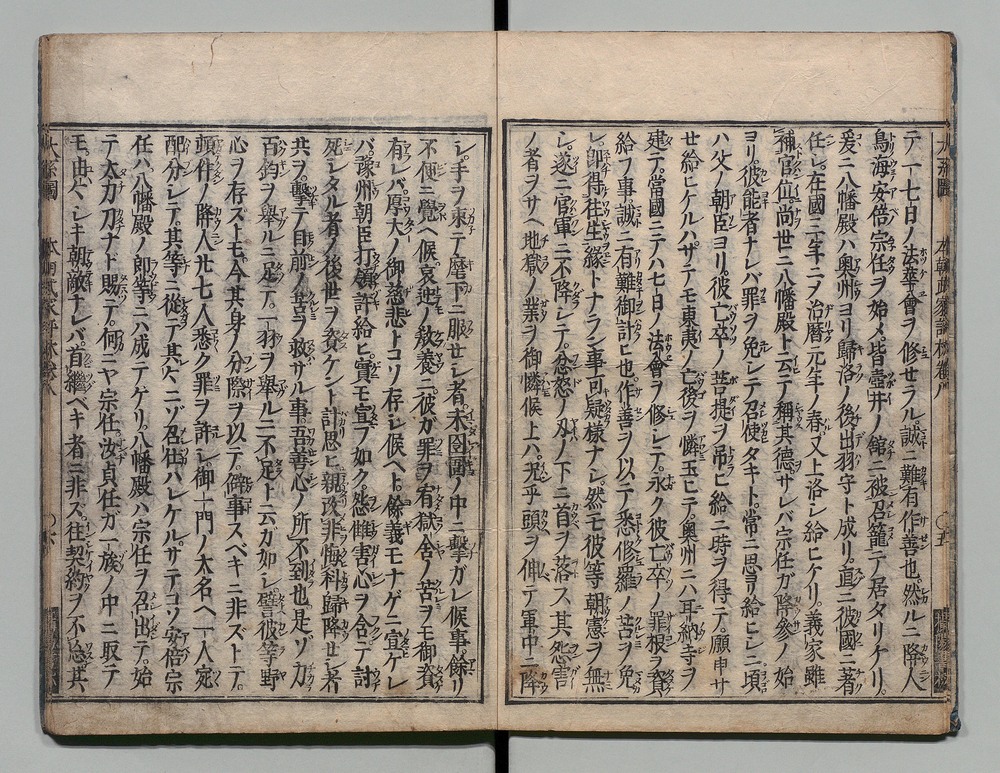 テ一七日ノ法華會ヲ修セラル誠ニ難有作善也然ルニ降人
鳥海安倍宗任ヲ始メ皆壺井ノ館ニ被召籠テ居タリケリ
爰ニ八幡殿ハ奥州ヨリ歸洛ノ後出羽守ト成リ直ニ彼國ニ著
任シ在國二年ニヲ治暦元年ノ春又上洛シ給ヒケリ義家雖
補官位尚世ニ八幡殿ト云テ稱其德サレバ宗任ガ降參ノ始
ヨリ彼能者ナレバ罪ヲ免シテ召使タキト常ニ思ヲ給ヒシニ頃
ハ父ノ朝臣ヨリ彼亡卒ノ菩提ヲ吊ヒ給ニ時ヲ得テ願申サ
せ給ヒケルハサテモ東夷ノ亡後ヲ憐玉ヒテ奥州ニハ耳納寺ヲ
建テ當國ニテハ七日ノ法會ヲ修シテ永ク彼亡卒ノ罪根ヲ資
給フ事誠ニ有難御計ヒ也作善ヲ以テ悉修羅ノ苦ヲ免
レ即得往生縁トナラン事可疑樣ナシ然モ彼等朝憲ヲ無
シ遂ニ官軍ニ不降シテ忿怒ノ刃ノ下ニ首ヲ落ス其怨害
ノ者ヲサヘ地獄ノ業ヲ御憐候上ハ况乎頭ヲ伸テ軍中ニ降
レ手ヲ束テ麿下ニ服せシ者未囹圄ノ中ニ擊ガレ候事餘リ
不便ニ覺ヘ候哀迎ノ敖養ニ彼ガ罪ヲ宥獄舍ノ苦ヲモ御資
有レバ厚大ノ御慈悲トコソ存シ候ヘト餘義モナゲニ宜ケレ
バ豫州朝臣打頷許給ヒ實モ宣フ如ク怨讎害心ヲ含テ討
死シタル者ノ後世ヲ資ケント計思ヒ親改非悔科歸降せシ者
共ヲ擊テ目前ノ苦ヲ救サル事吾善心ノ所不到也是ゾ力
百鈞ヲ舉ルニ足テ一羽ヲ舉ルニ不足ト云ガ如シ譬彼等野
心ヲ存ストモ今其身ノ分際ヲ以テ何事スベキニ非ズトテ
頭什ノ降人廿七人悉ク罪ヲ許シ御一門ノ大名ヘ一人宛
配分シテ其等ニ從テ其々ニゾ召仕ハレケルサテコソ安倍宗
任ハ八幡殿ノ郎等ニハ成テケリ八幡殿ハ宗任ヲ召出テ始
テ太刀刀ナド賜テ何ニヤ宗任汝貞任ガ一族ノ中ニ取テ
モ由々シキ朝敵ナレバ首繼ベキ者ニ非ズ往契約ヲ不忘其